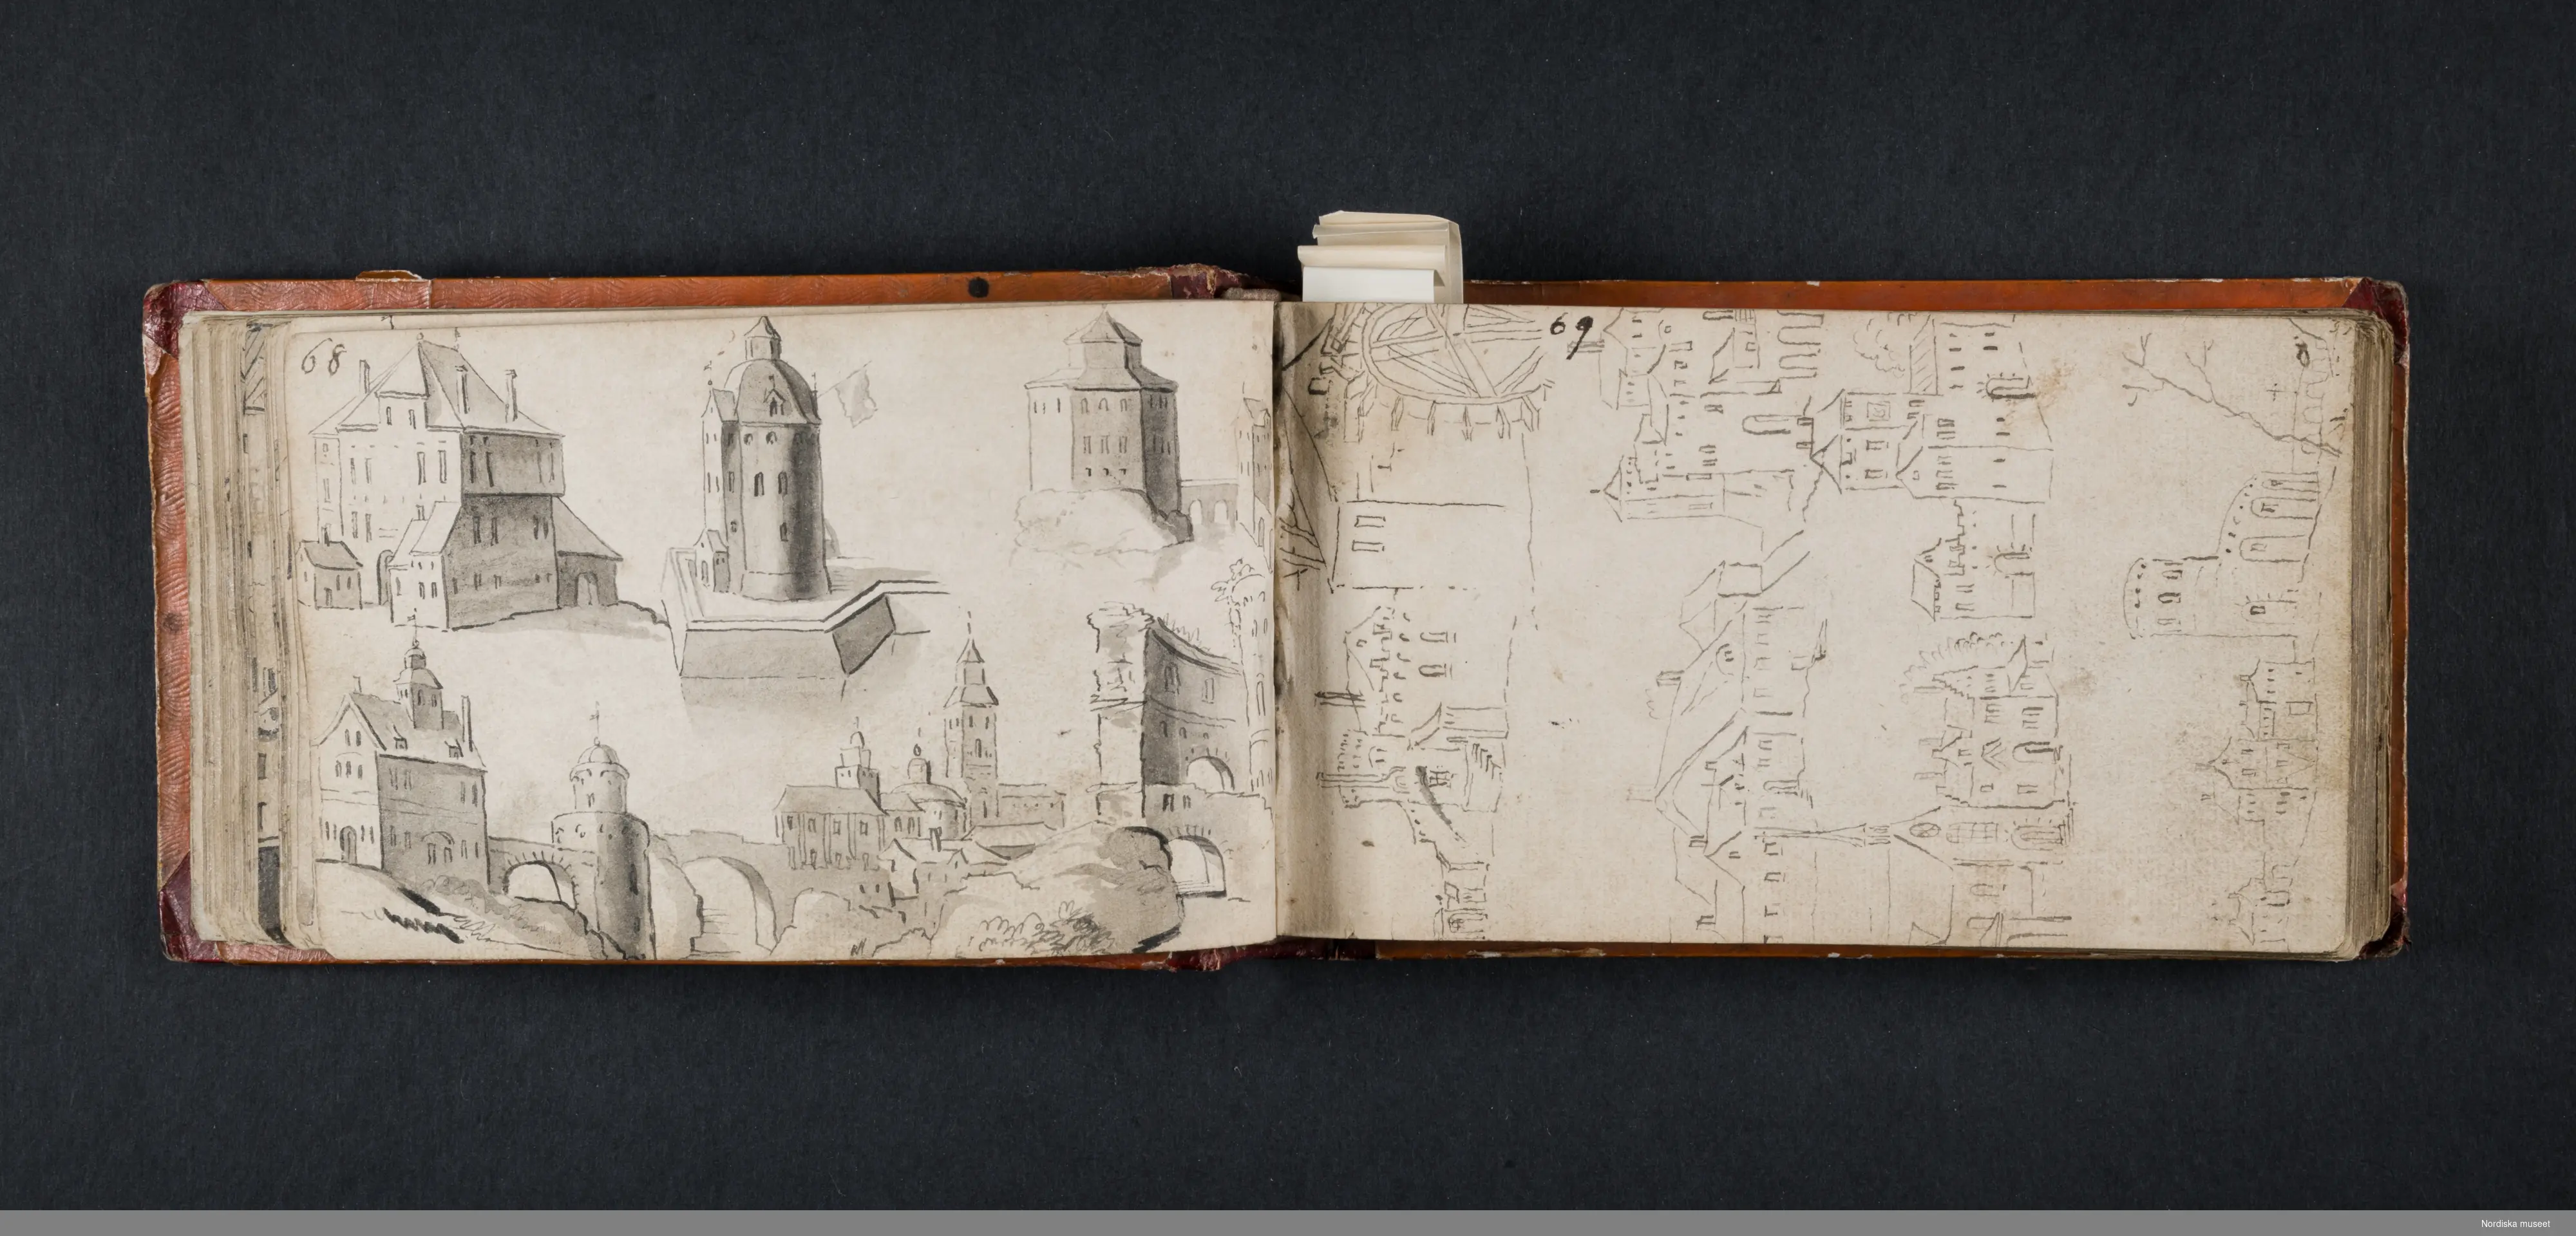 68
69
Nordiska museet